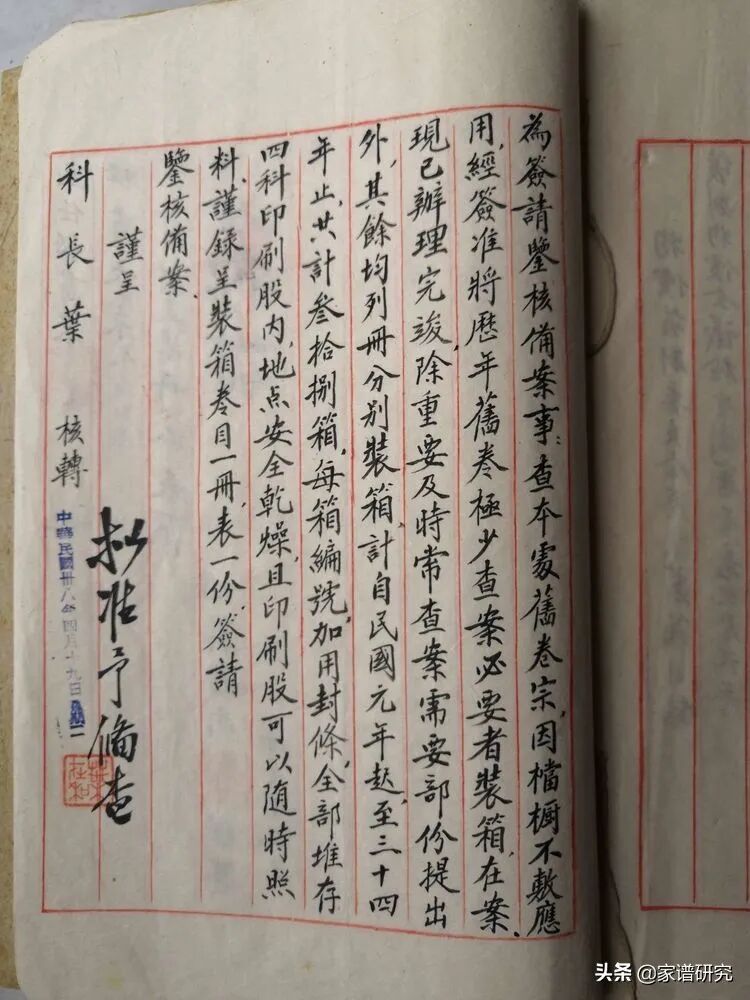 為簽請鑒核備案事：查本處舊卷宗，因檔櫥不敷應
用，經簽准將歷年舊卷極少查案必要者裝箱，在案。
現已辦理完竣，除重要及時常查案需要部份提出
外，其餘均列冊分別裝箱，計自民國元年起，至三十四
年止，共計叁拾捌箱，每箱編號加用封條，全部堆存
四科印刷股內，地点安全乾燥，且印刷股可以隨時照
料，謹錄呈裝箱卷目一冊，表一份，簽請
鑒核備案．
謹呈
科長葉 核轉
中華民國卅八年四月十九日
拟准予備查
头条 @家谱研究